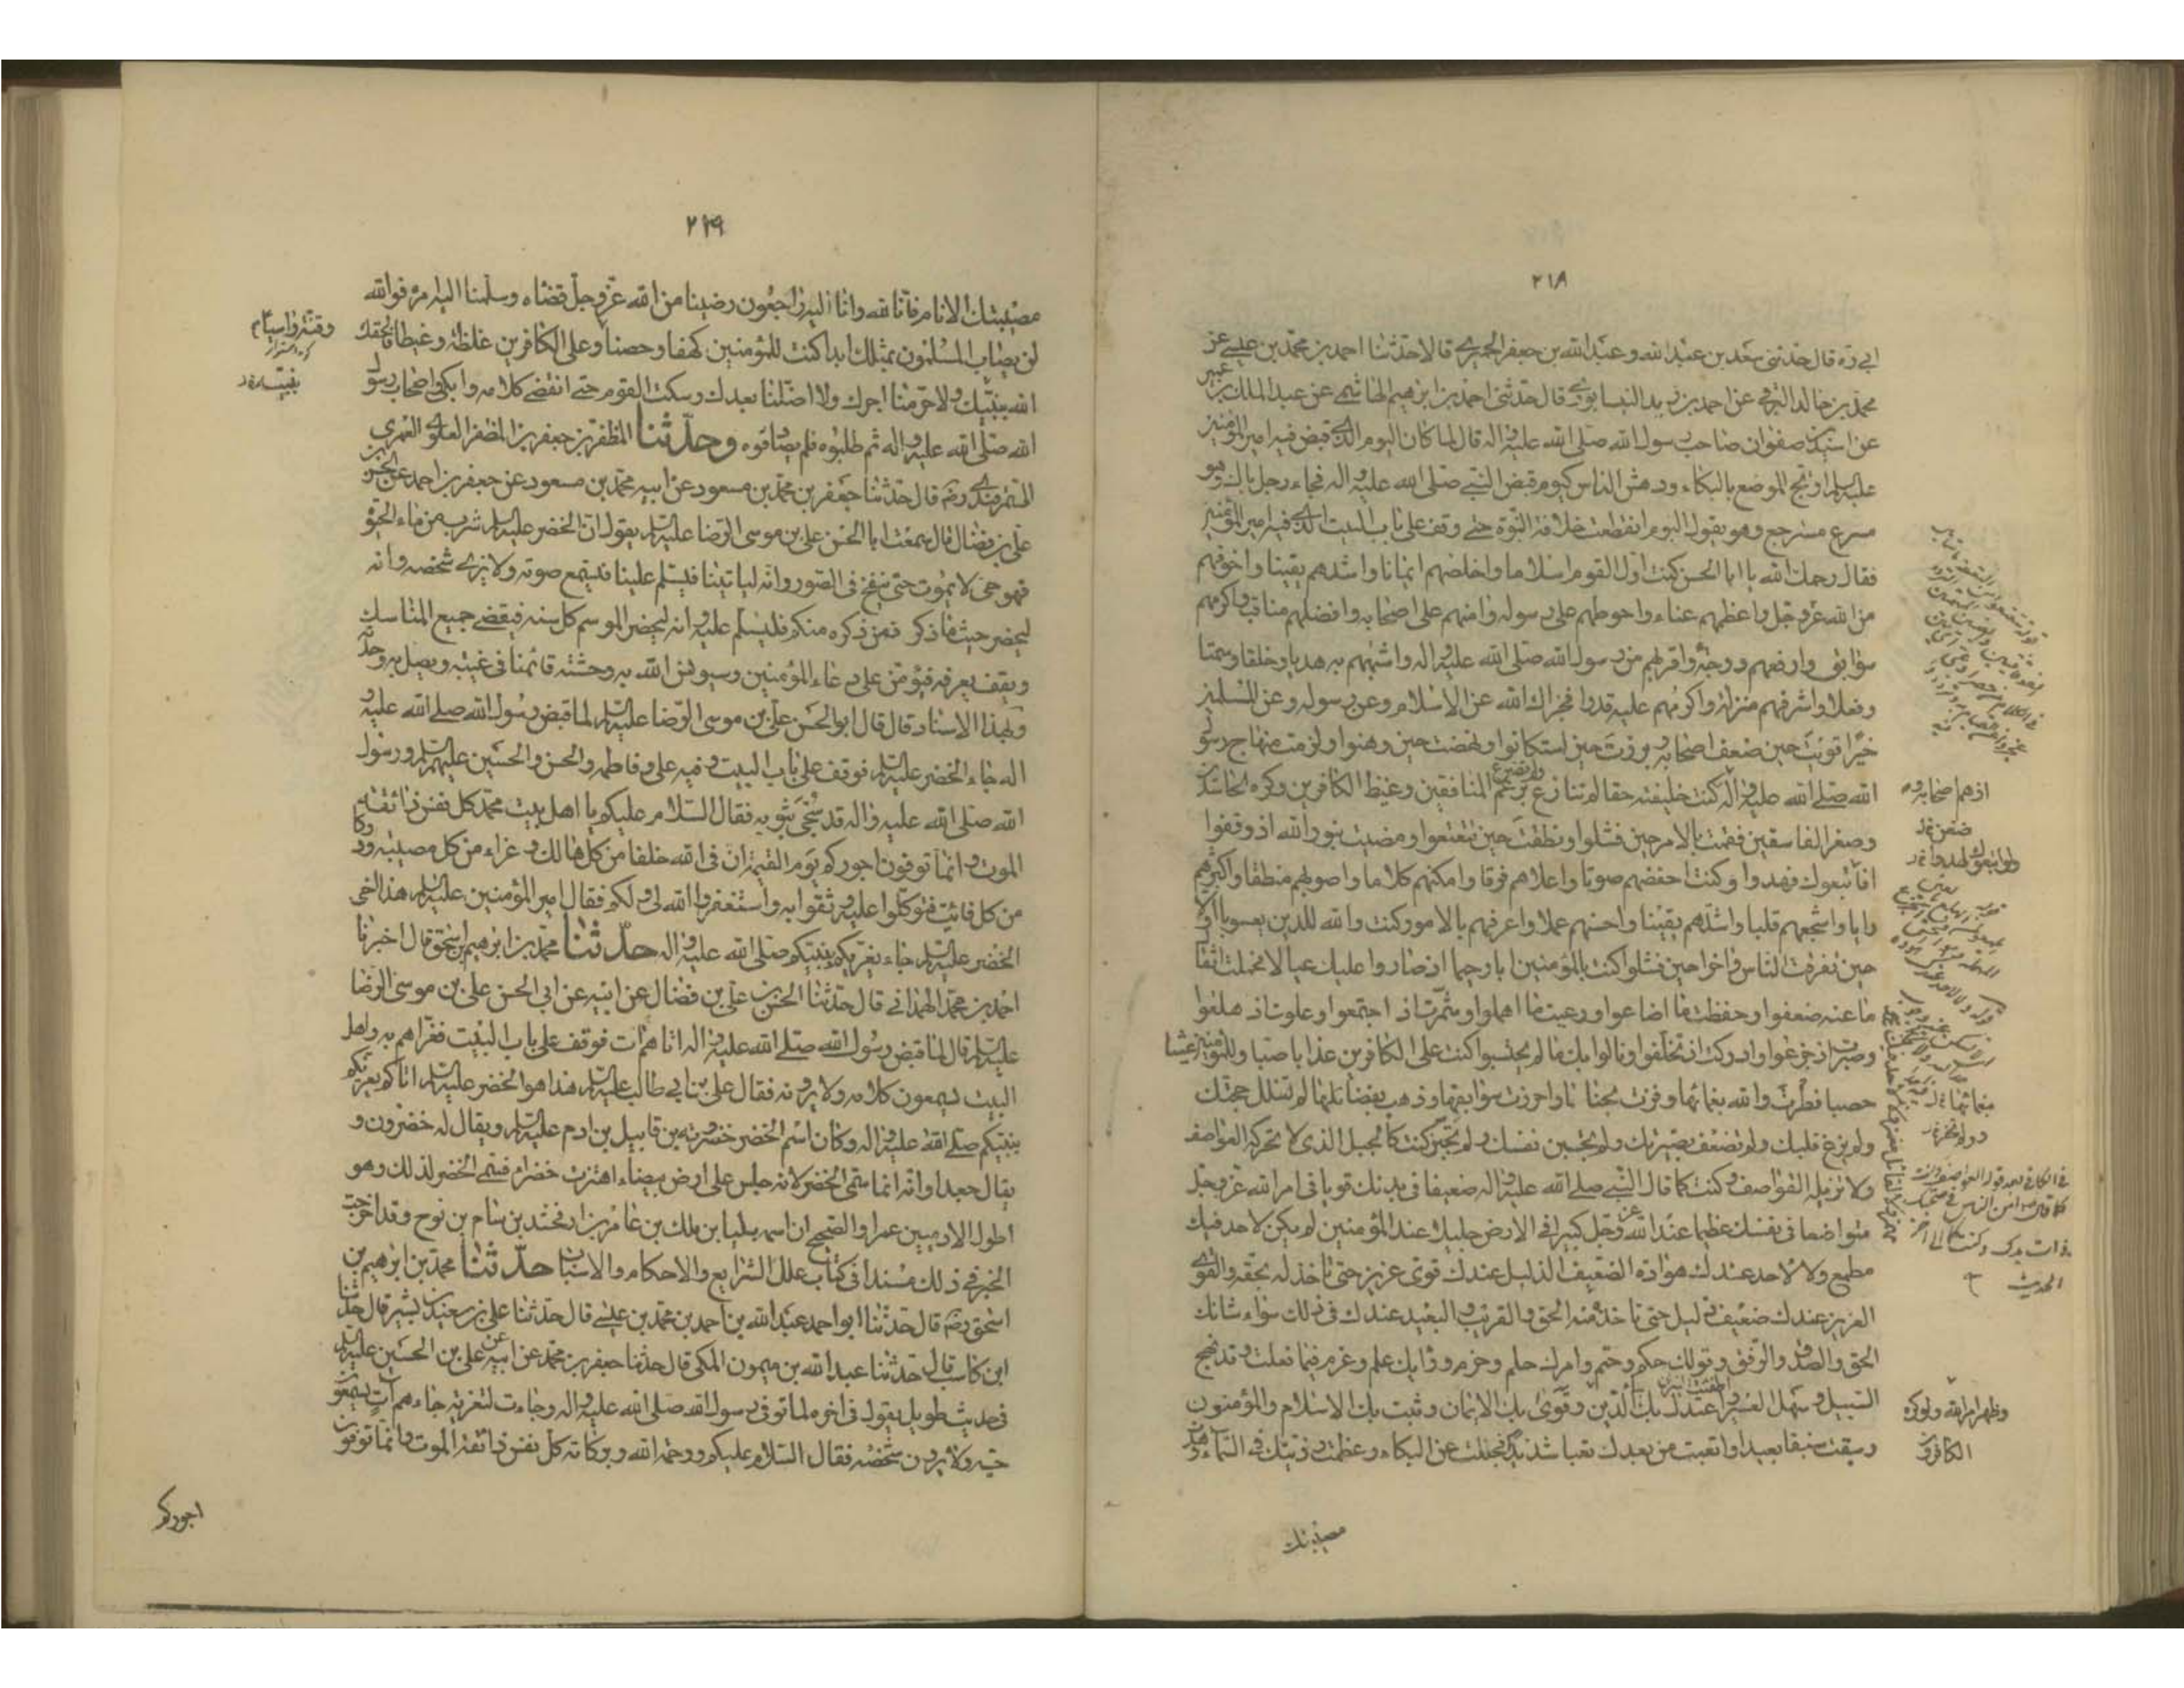 ٢١٨
ابي ره قال حدثنى سعد بن عبد الله و عبد الله بن جعفر الحميرى قالا حدثنا احمد بن محمد بن عيسى عن
محمد بن خالد البرقى عن احمد بن زيد النيسابورى قال حدثنى احمد بن ابرهيم الهاشمى عن عبد الملك بن عمير
عن اسيد بن صفوان صاحب رسول الله صلى الله عليه و اله قال لما كان اليوم الذى قبض فيه امير المؤمنين
عليه السلم ارتج الموضع بالبكاء و دهش الناس كيوم قبض النبى صلى الله عليه و اله فجاء رجل باك و هو
مسرع مسترجع و هو يقول اليوم انقطعت خلافة النبوة حتى وقف على باب البيت الذى فيه امير المؤمنين
فقال رحمك الله يا ابا الحسن كنت اول القوم اسلاما و اخلصهم ايمانا و اشدهم يقينا و اخوفهم
من الله عز و جل و اعظمهم عناء و احوطهم على رسوله و امنهم على اصحابه و افضلهم مناقب و اكرمهم
سوابق و ارفعهم درجة و اقربهم من رسول الله صلى الله عليه و اله و اشبههم به هديا و خلقا و سمتا
و فعلا و اشرفهم منزلة و اكرمهم عليه قدرا فجزاك الله عن الاسلام و عن رسوله و عن المسلمين
خيرا قويت حين ضعف اصحابه و برزت حين استكانوا و نهضت حين وهنوا و لزمت منهاج رسول
الله صلى الله عليه و اله كنت خليفته حقا لم تنازع و لم تضرع برغم المنافقين و غيظ الكافرين و كره الحاسدين
و صغر الفاسقين فقمت بالامر حين فشلوا و نطقت حين تتعتعوا و مضيت بنور الله اذ وقفوا
فاتبعوك فهدوا و كنت اخفضهم صوتا و اعلاهم فوقا و امكنهم كلاما و اصوبهم منطقا و اكبرهم
رايا و اشجعهم قلبا و اشدهم يقينا و احسنهم عملا و اعرفهم بالامور كنت و الله للدين يعسوبا اولا
حين تفرق الناس و اخرا حين فشلوا كنت بالمؤمنين ابا رحيما اذ صاروا عليك عيالا فحملت اثقال
ما عنه ضعفوا و حفظت ما اضاعوا و رعيت ما اهملوا و شمرت اذ اجتمعوا و علوت اذ هلعوا
و صبرت اذ جزعوا و ادركت اذ تخلفوا و نالوا بك ما لم يحتسبوا كنت على الكافرين عذابا صبا و للمؤمنين غيثا
حصبا فطرت و الله بغمائها و فزت بحبائها و احرزت سوابقها و ذهبت بفضائلها لم تفلل حجتك
و لم يزغ قلبك و لم تضعف بصيرتك و لم تجبن نفسك و لم تخن كنت كالجبل الذى لا تحركه العواصف
و لا تزيله القواصف و كنت كما قال النبى صلى الله عليه و اله ضعيفا فى بدنك قويا فى امر الله عز و جل
متواضعا فى نفسك عظيما عند الله عز و جل كبيرا فى الارض جليلا عند المؤمنين لم يكن لاحد فيك
مطمع و لا لاحد عندك هوادة الضعيف الذليل عندك قوى عزيز حتى تاخذ له بحقه و القوى
العزيز عندك ضعيف ذليل حتى تاخذ منه الحق و القريب و البعيد عندك فى ذلك سواء شانك
الحق و الصدق و الرفق و قولك حكم و حتم و امرك حلم و حزم و رايك علم و عزم فيما فعلت و قد نهج
السبيل و سهل العسير و اطفئت النيران و اعتدل بك الدين و قوى بك الايمان و ثبت بك الاسلام و المؤمنون
و سبقت سبقا بعيدا و اتعبت من بعدك تعبا شديدا فجللت عن البكاء و عظمت رزيتك فى السماء و هدت
اذ هم اصحابه
و ظهر امر الله و لو كره
الكافرون
مصيبتك
٢١٩
مصيبتك الانام فانا لله و انا اليه راجعون رضينا من الله عز و جل قضاه و سلمنا اليه امره فو الله
لن يصاب المسلمون بمثلك ابدا كنت للمؤمنين كهفا و حصنا و على الكافرين غلظة و غيظا فالحقك
الله بنبيك و لا حرمنا اجرك و لا اضلنا بعدك و سكت القوم حتى انقضى كلامه و ابكى اصحاب رسول
الله صلى الله عليه و اله ثم طلبوه فلم يصادفوه و حدثنا المظفر بن جعفر بن المظفر العلوى العمرى
السمرقندى رضه قال حدثنا جعفر بن محمد بن مسعود عن ابيه محمد بن مسعود عن جعفر بن احمد عن الحسن بن
على بن فضال قال سمعت ابا الحسن على بن موسى الرضا عليه السلم يقول ان الخضر عليه السلم شرب من ماء الحيوة
فهو حى لا يموت حتى ينفخ فى الصور و انه لياتينا فيسلم علينا فيسمع صوته و لا نرى شخصه و انه
ليحضر حيث ما ذكر فمن ذكره منكم فليسلم عليه و انه ليحضر الموسم كل سنه فيقضى جميع المناسك
و يقف بعرفه فيؤمن على دعاء المؤمنين و سيونس الله به وحشة قائمنا فى غيبته و يصل به وحدته
و بهذا الاسناد قال قال ابو الحسن على بن موسى الرضا عليه السلم لما قبض رسول الله صلى الله عليه و
اله جاء الخضر عليه السلم فوقف على باب البيت و فيه على و فاطمه و الحسن و الحسين عليهم السلم و رسول
الله صلى الله عليه و اله قد سجى بثوبه فقال السلام عليكم يا اهل بيت محمد كل نفس ذائقة
الموت و انما توفون اجوركم يوم القيمة ان فى الله خلفا من كل هالك و عزاء من كل مصيبة و دركا
من كل فائت فتوكلوا عليه و ثقوا به و استغفروا الله لى و لكم فقال امير المؤمنين عليه السلم هذا اخى
الخضر عليه السلم جاء يعزيكم بنبيكم صلى الله عليه و اله حدثنا محمد بن ابرهيم بن اسحق قال اخبرنا
احمد بن محمد الهمدانى قال حدثنا الحسن بن على بن فضال عن ابيه عن ابى الحسن على بن موسى الرضا
عليه السلم قال لما قبض رسول الله صلى الله عليه و اله اتاهم ات فوقف على باب البيت فعزاهم به و اهل
البيت يسمعون كلامه و لا يرونه فقال على بن ابى طالب عليه السلم هذا هو الخضر عليه السلم اتاكم يعزيكم
بنبيكم صلى الله عليه و اله و كان اسم الخضر خضرويه بن قابيل بن ادم عليه السلم و يقال له خضرون و
يقال جعدا و انه انما سمى الخضر لانه جلس على ارض بيضاء اهتزت خضراء فسمى الخضر لذلك و هو
اطول الادميين عمرا و الصحيح ان اسمه بليا بن ملكان بن عامر بن ارفخشد بن سام بن نوح و قد اخرجت
الخبر فى ذلك مسندا فى كتاب علل الشرايع و الاحكام و الاسباب حدثنا محمد بن ابرهيم بن
اسحق رضه قال حدثنا ابو احمد عبد الله بن احمد بن محمد بن عيسى قال حدثنا على بن سعيد بن بشير قال حدثنا
ابن كاسب قال حدثنا عبد الله بن ميمون المكى قال حدثنا جعفر بن محمد عن ابيه عن على بن الحسين عليه السلم
فى حديث طويل يقول فى اخره لما توفى رسول الله صلى الله عليه و اله و جاءت التعزية جاءهم ات يسمعون
حسه و لا يرون شخصه فقال السلام عليكم و رحمة الله و بركاته كل نفس ذائقة الموت و انما توفون
اجوركم